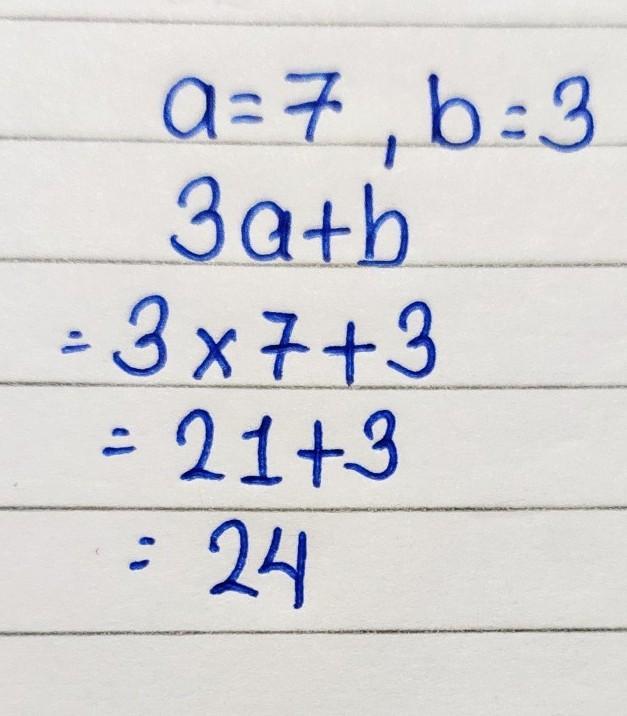 a=7, b=3
3a+b
=3×7+3
=21+3
=24